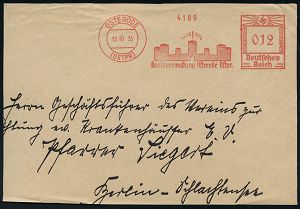 4189
OSTERODE
15.10.35
(OSTPR)
012
Deutsches
Reich
Kreisverwaltung Osterode Ostpr.
Herrn Geschäftsführer des Vereins zur
ev. Krankenhäuser E.V.
Pfarrer Siegert
Berlin-Schlachtensee